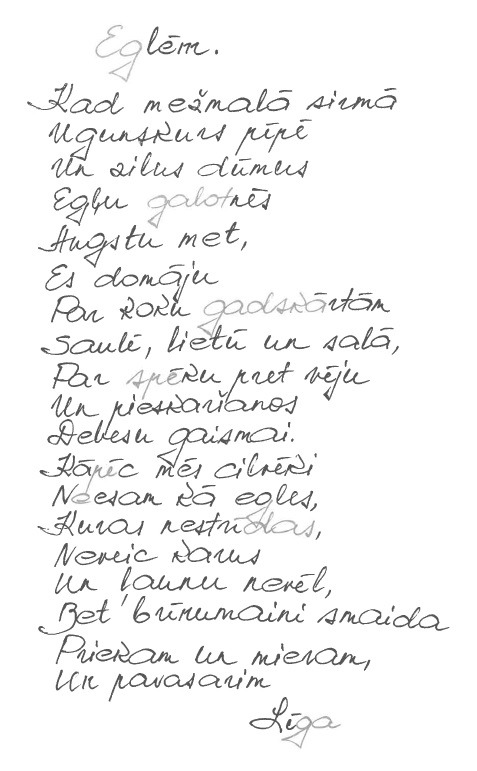 Eglēm.
Kad mežmalā sirmā
Ugunskurs pīpē
Un zilus dūmus
Egļu galotnēs
Augstu met,
Es domāju
Par koku gadskārtām
Saulē, lietū un salā,
Par spēku pret vēju
Un pieskaršanos
Debesu gaismai.
Kāpēc mēs cilvēki
Neesam kā egles,
Kuras nestrīdas,
Neveic karus
Un ļaunu nevēl,
Bet brīnumaini smaida
Priekam un mieram,
Un pavasarim
Līga